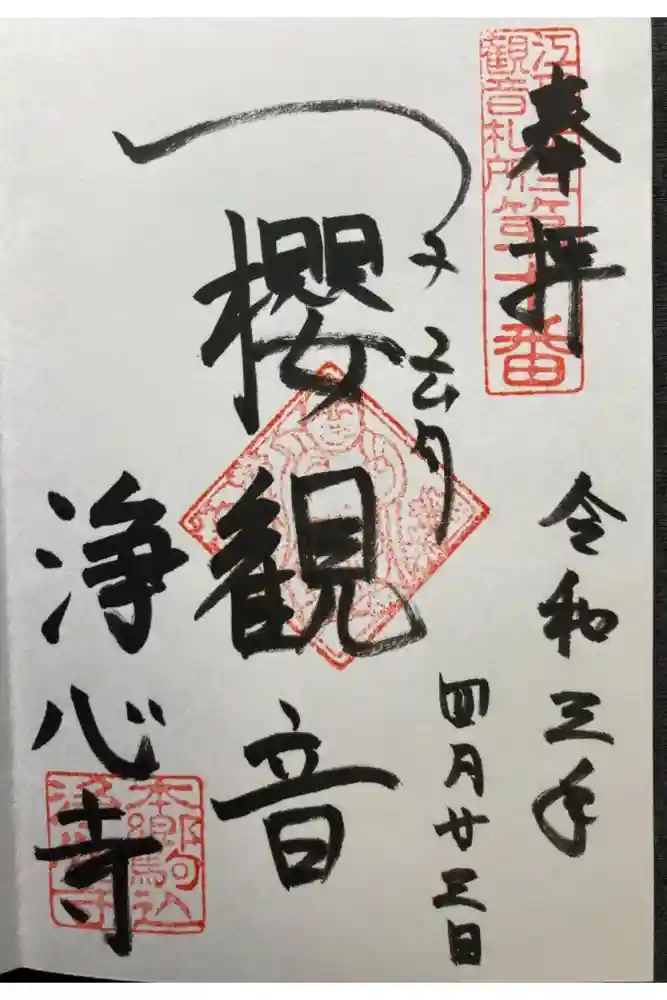 奉拝
令和三年
四月廿三日
櫻観音
浄心寺
観音札所第十番
本郷駒込
浄心寺